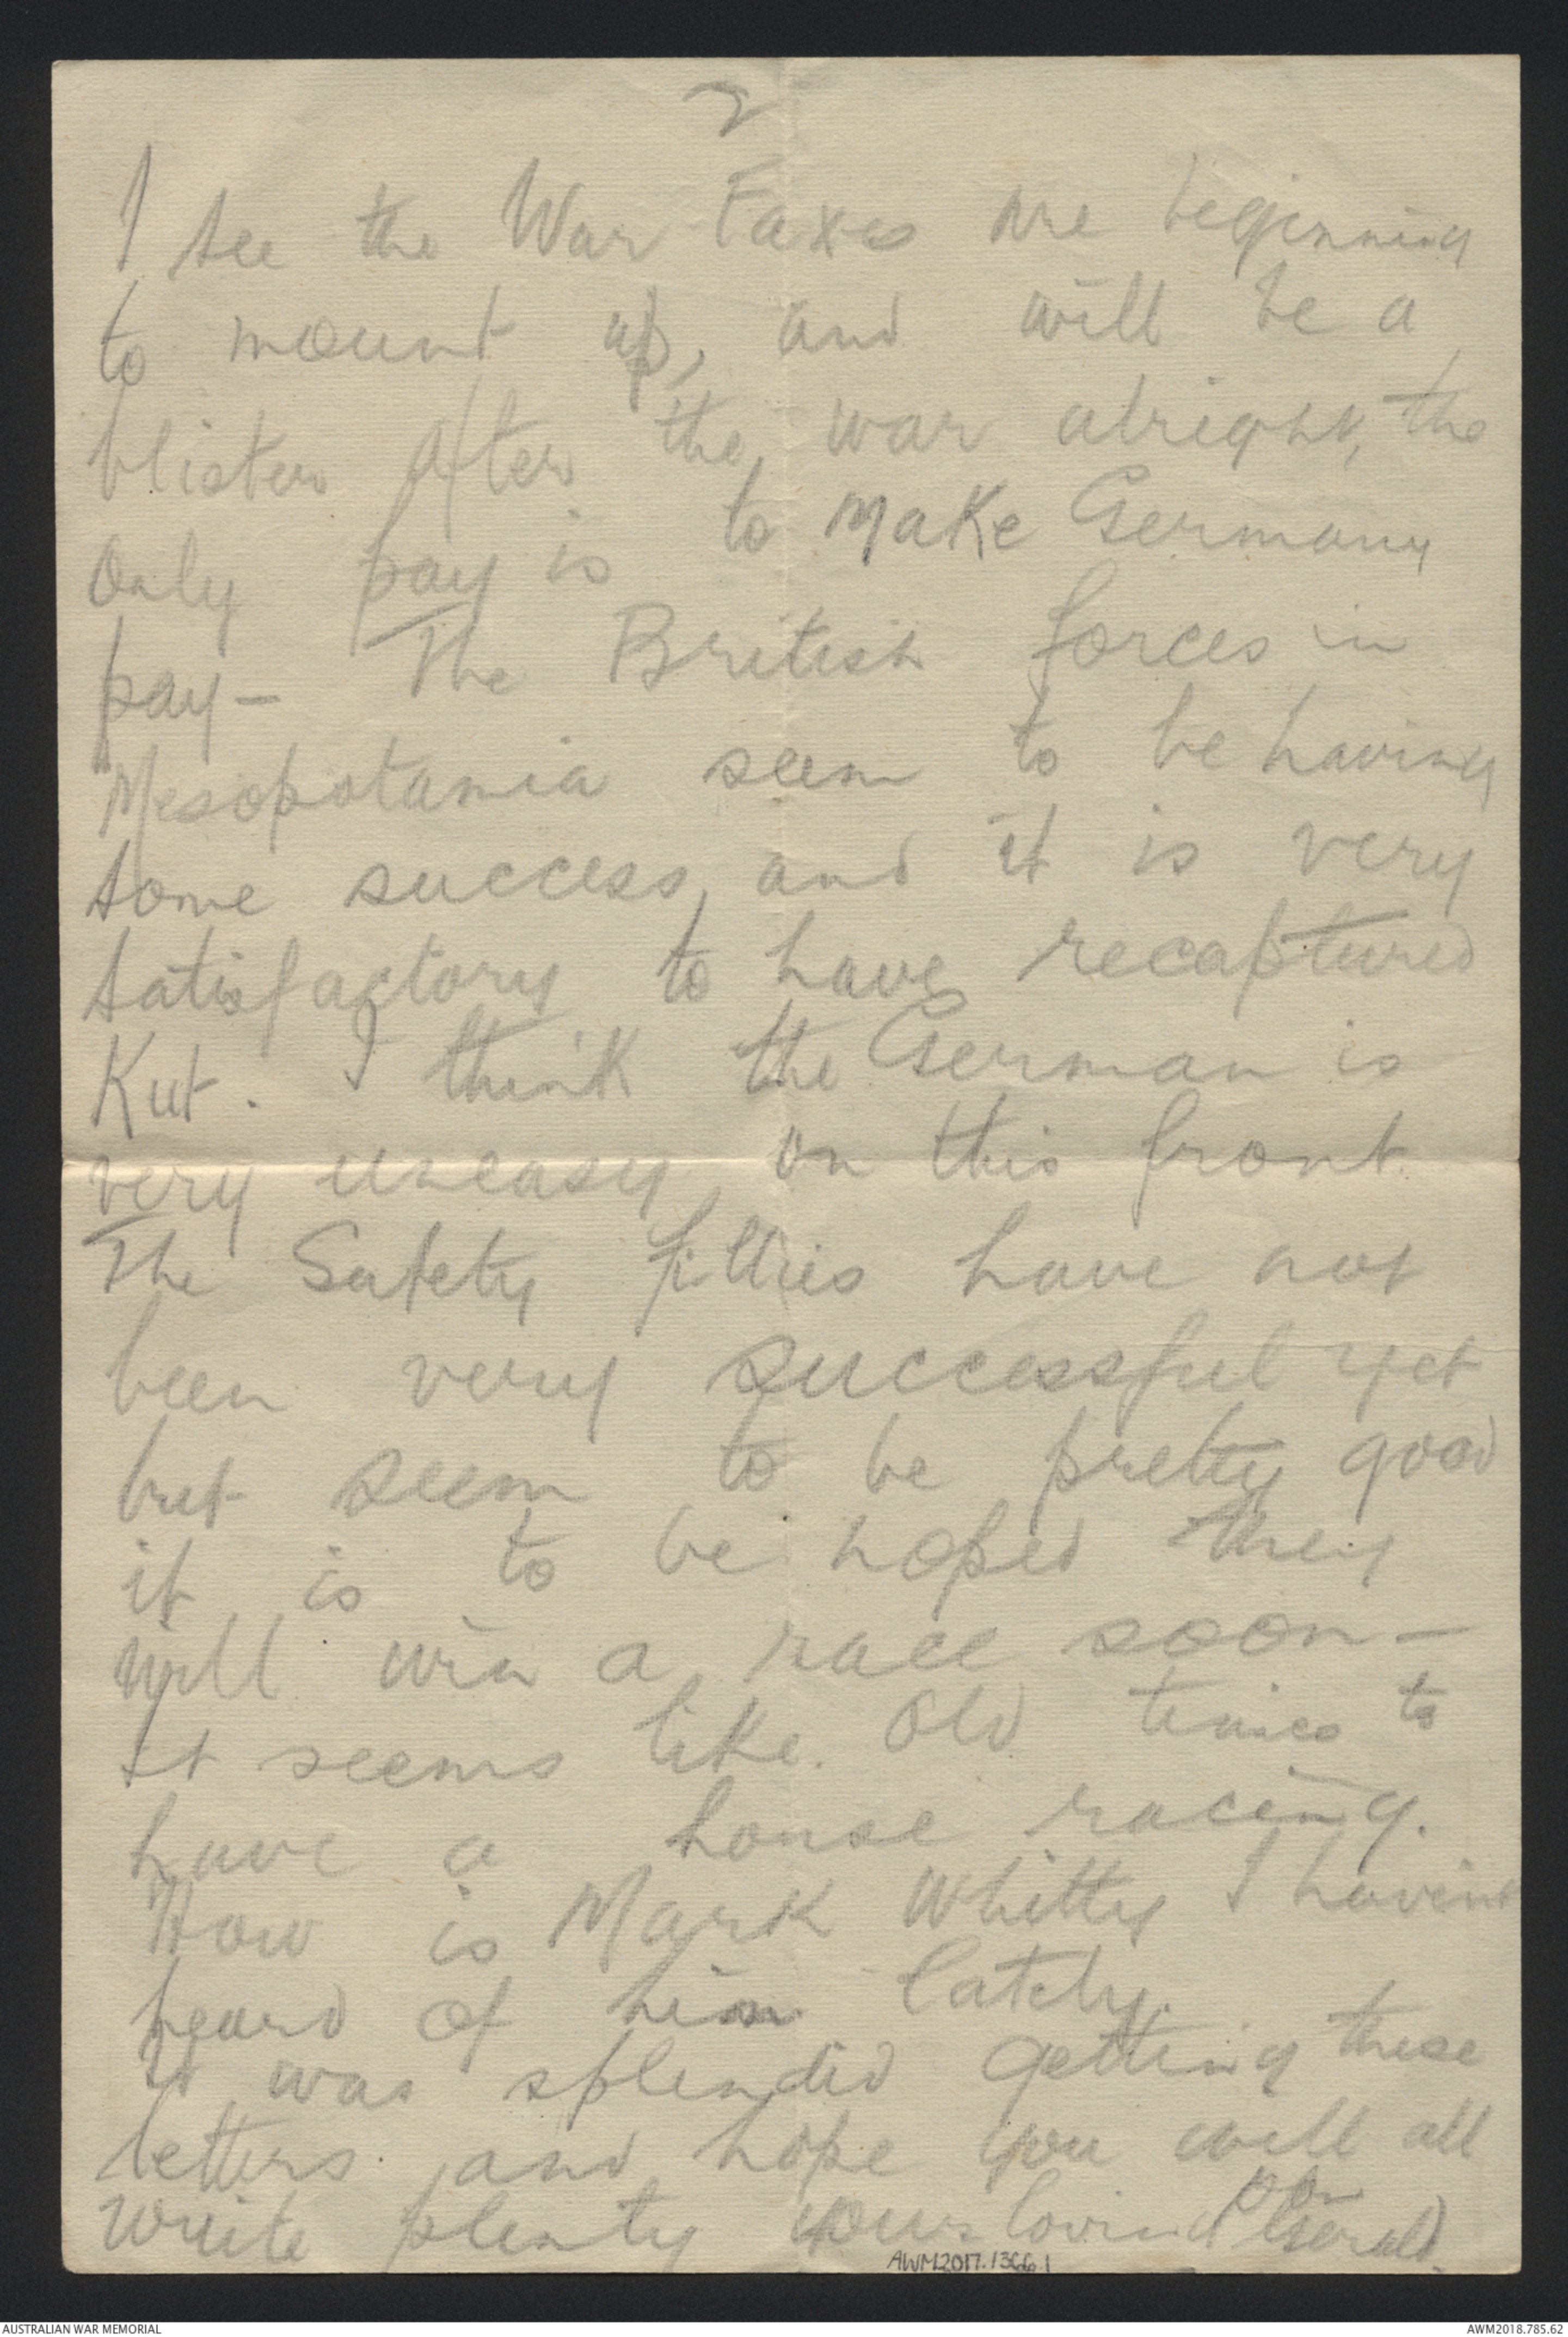 2
I see the War Taxes are beginning
to mount up, and will be a
blister after the war alright, the
only pay is to make Germany
pay - The British forces in
Mesopotamia seem to be having
some success, and it is very
satisfactory to have recaptured
Kut. I think the German is
very uneasy on this front.
The Safety fillies have not
been very successful yet
but seem to be pretty good
it is to be hoped they
will win a race soon -
It seems like old times to
have a horse racing.
How is Mark Whitty I havent
heard of him lately.
It was splendid getting these
letters and hope you will all
write plenty your loving son
Gerald.
AWM2017.1366.1
AUSTRALIAN WAR MEMORIAL
AWM2018.785.62